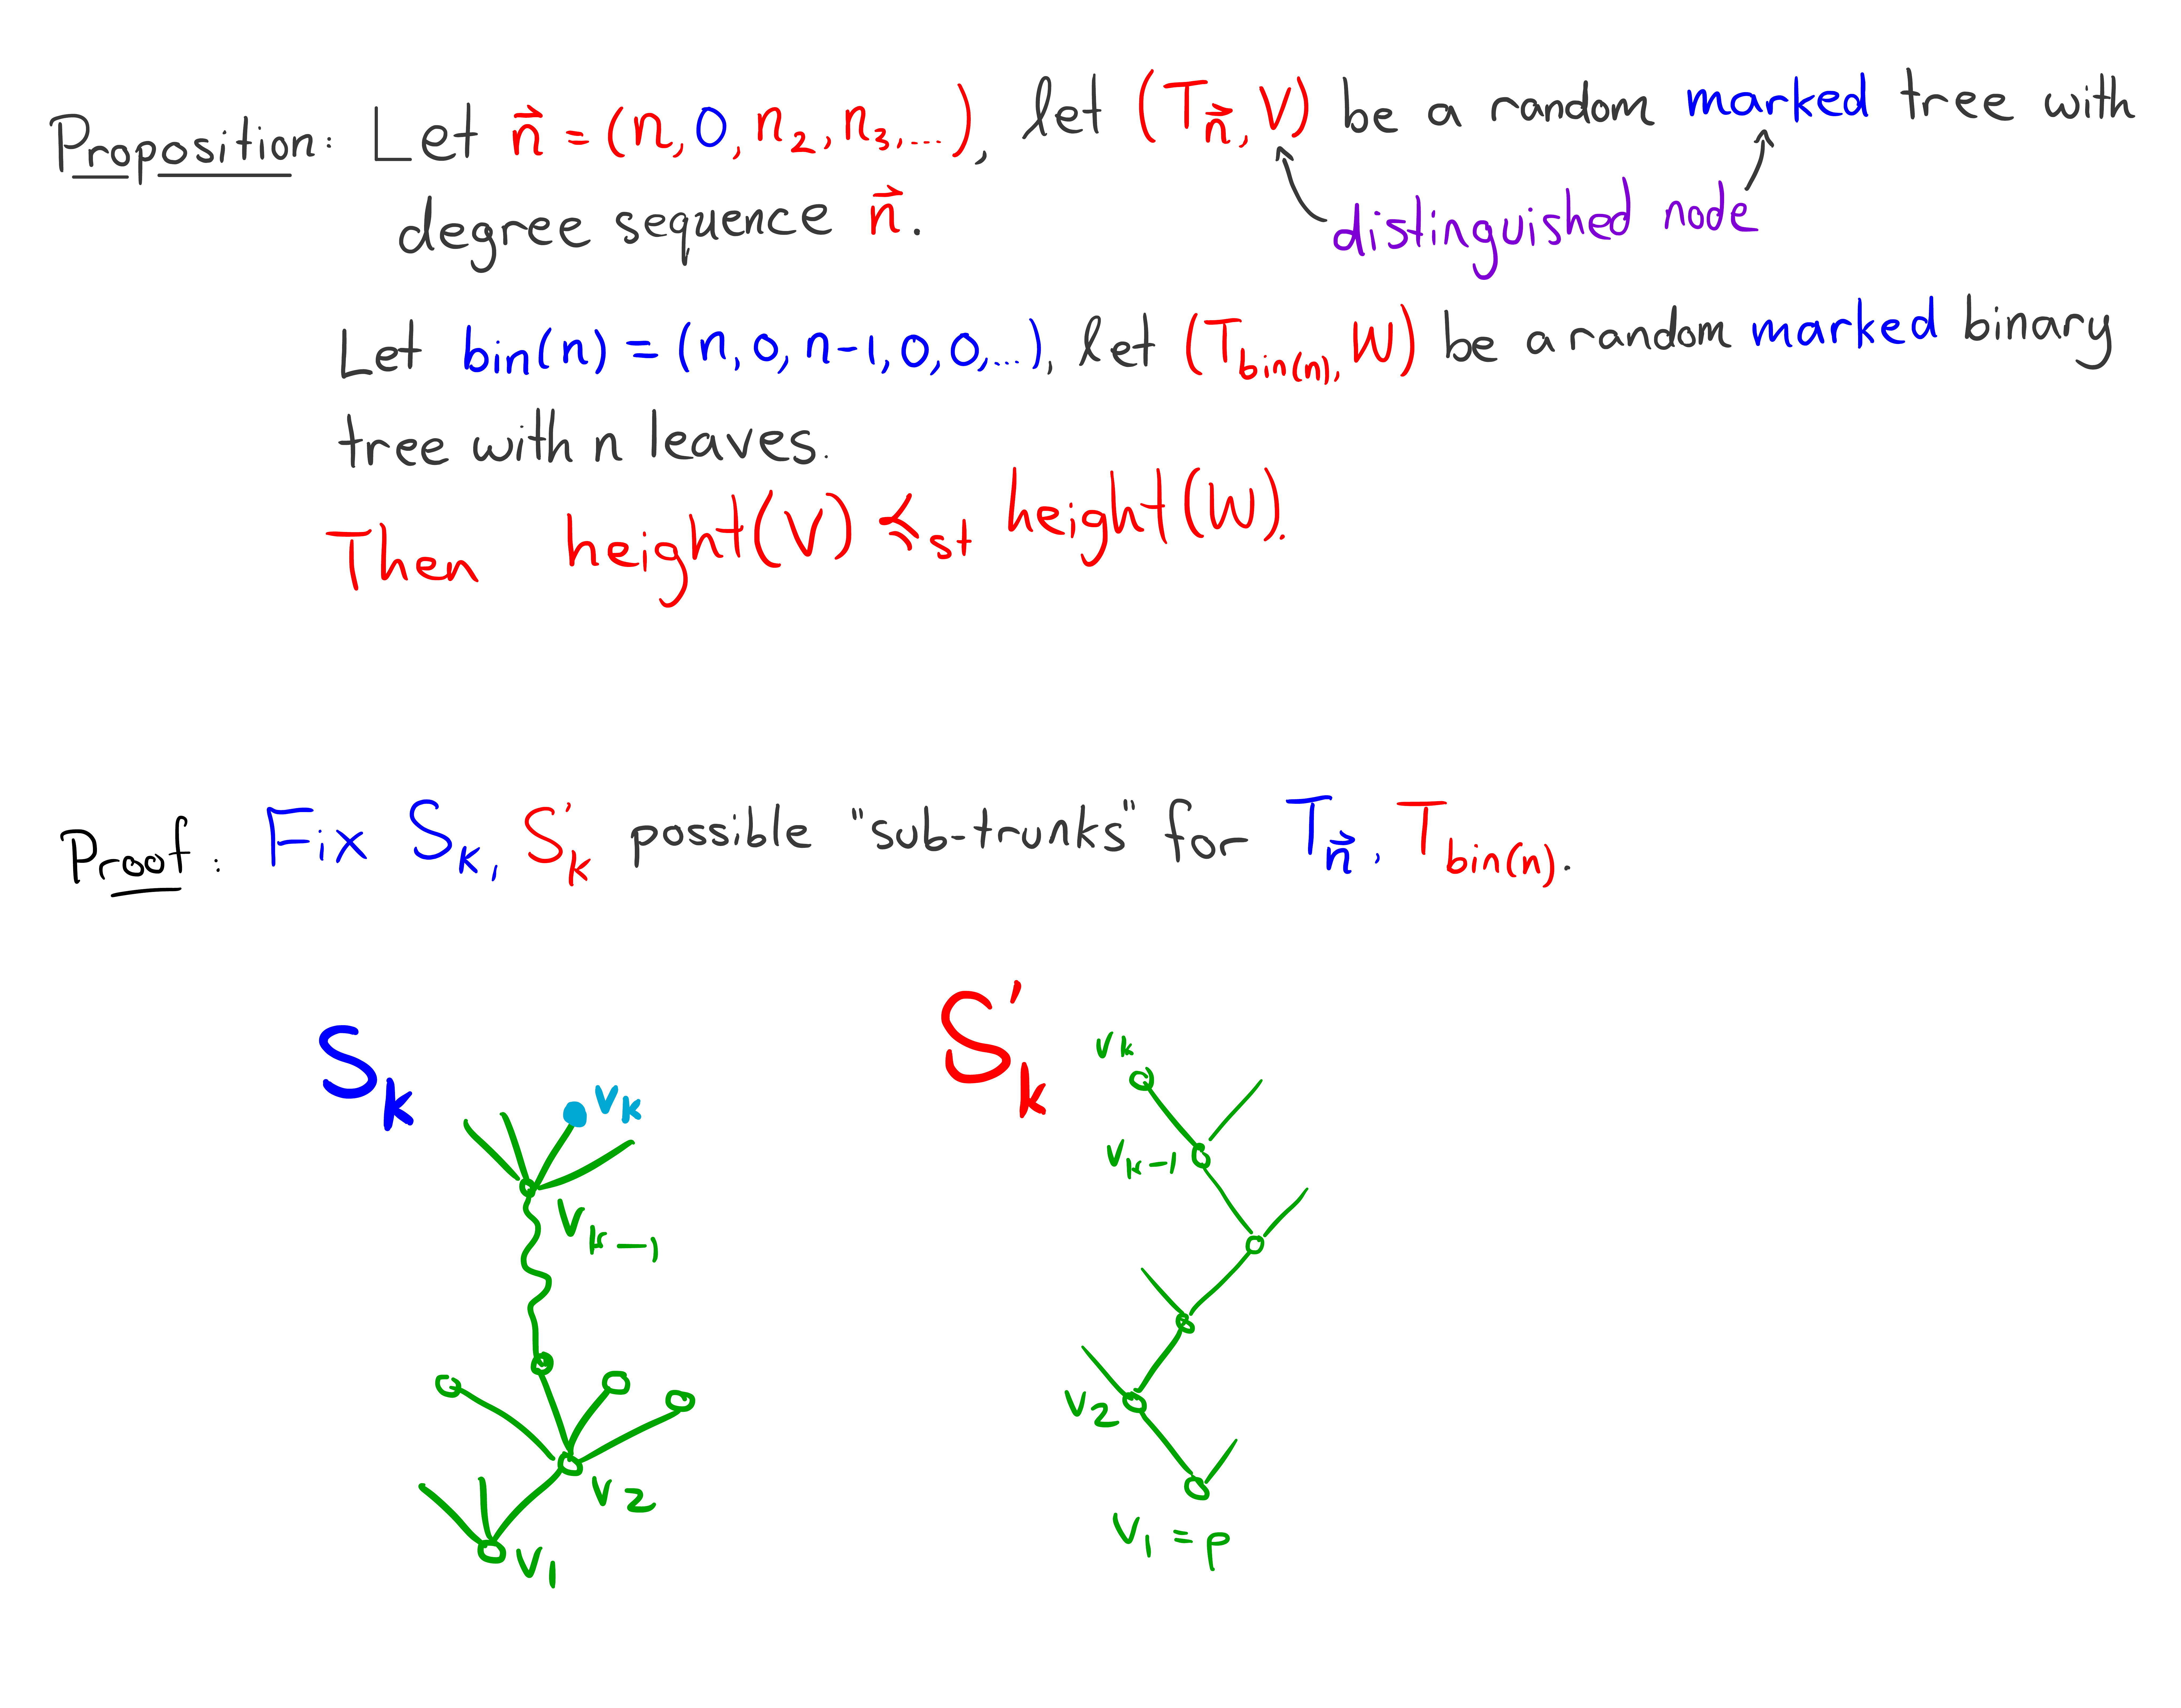 Proposition: Let n⃗ = (n, 0, n₂, n₃, ...), let (T_n⃗, V) be a random marked tree with
degree sequence n⃗.
distinguished node
Let bin(n) = (n, 0, n-1, 0, 0, ...), let (T_bin(n), W) be a random marked binary
tree with n leaves.
Then height(V) ≼_st height(W).
Proof: Fix S_k, S'_k possible "sub-trunks" for T_n⃗, T_bin(n).
S_k
v_k
v_k-1
v_2
v_1
S'_k
v_k
v_k-1
v_2
v_1 = ρ